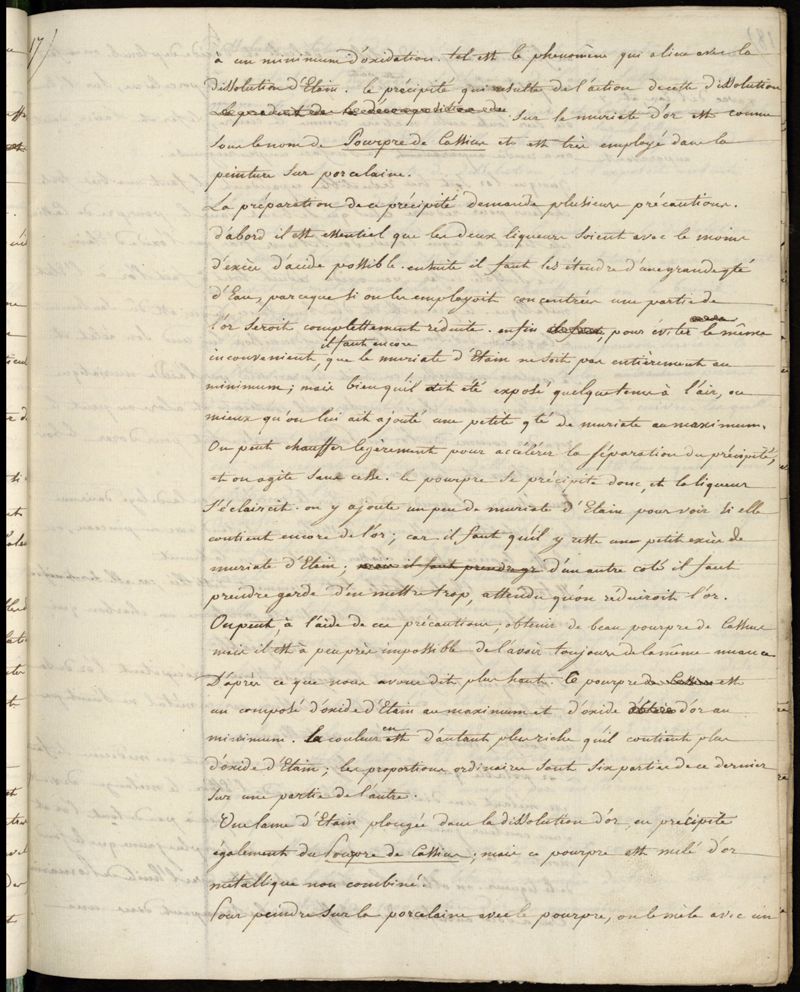 17
à un minimum d'oxidation. tel est le phenomène qui a lieu avec la
dissolution d'Etain. le précipité qui resulte de l'action de cette dissolution
Le produit de la décomposition du sur le muriate d'or est connu
sous le nom de Pourpre de Cassius et est très employé dans la
peinture sur porcelaine.
La préparation de ce précipité demande plusieurs précautions.
d'abord il est essentiel que les deux liqueurs soient avec le moins
d'excès d'acide possible. ensuite il faut les étendre d'une grande qté
d'Eau, parceque si on les employoit concentrées une partie de
l'or seroit complettement reduite. enfin il faut, pour éviter le même
inconvenient, il faut encore que le muriate d'Etain ne soit pas entièrement au
minimum; mais bien qu'il ait été exposé quelque tems à l'air, ou
mieux qu'on lui ait ajouté une petite qté de muriate au maximum.
On peut chauffer legèrement pour accélérer la séparation du précipité,
et on agite sans cesse. le pourpre se précipite donc, et la liqueur
s'éclaircit. on y ajoute un peu de muriate d'Etain pour voir si elle
contient encore de l'or; car il faut qu'il y reste un petit excès de
muriate d'Etain; mais il faut prendre gr d'un autre coté il faut
prendre garde d'en mettre trop, attendu qu'on réduiroit l'or.
On peut, à l'aide de ces précautions, obtenir de beau pourpre de Cassius
mais il est à peu près impossible de l'avoir toujours de la même nuance
D'après ce que nous avons dit plus haut. Ce pourpre de Cassius est
un composé d'oxide d'Etain au maximum et d'oxide d'or au
minimum. La couleur en est d'autant plus riche qu'il contient plus
d'oxide d'Etain; les proportions ordinaires sont six parties de ce dernier
sur une partie de l'autre.
Une lame d'Etain plongée dans la dissolution d'or, en précipite
également du Pourpre de Cassius; mais ce pourpre est mêlé d'or
métallique non combiné.
Pour peindre sur la porcelaine avec le pourpre, on le mêle avec un